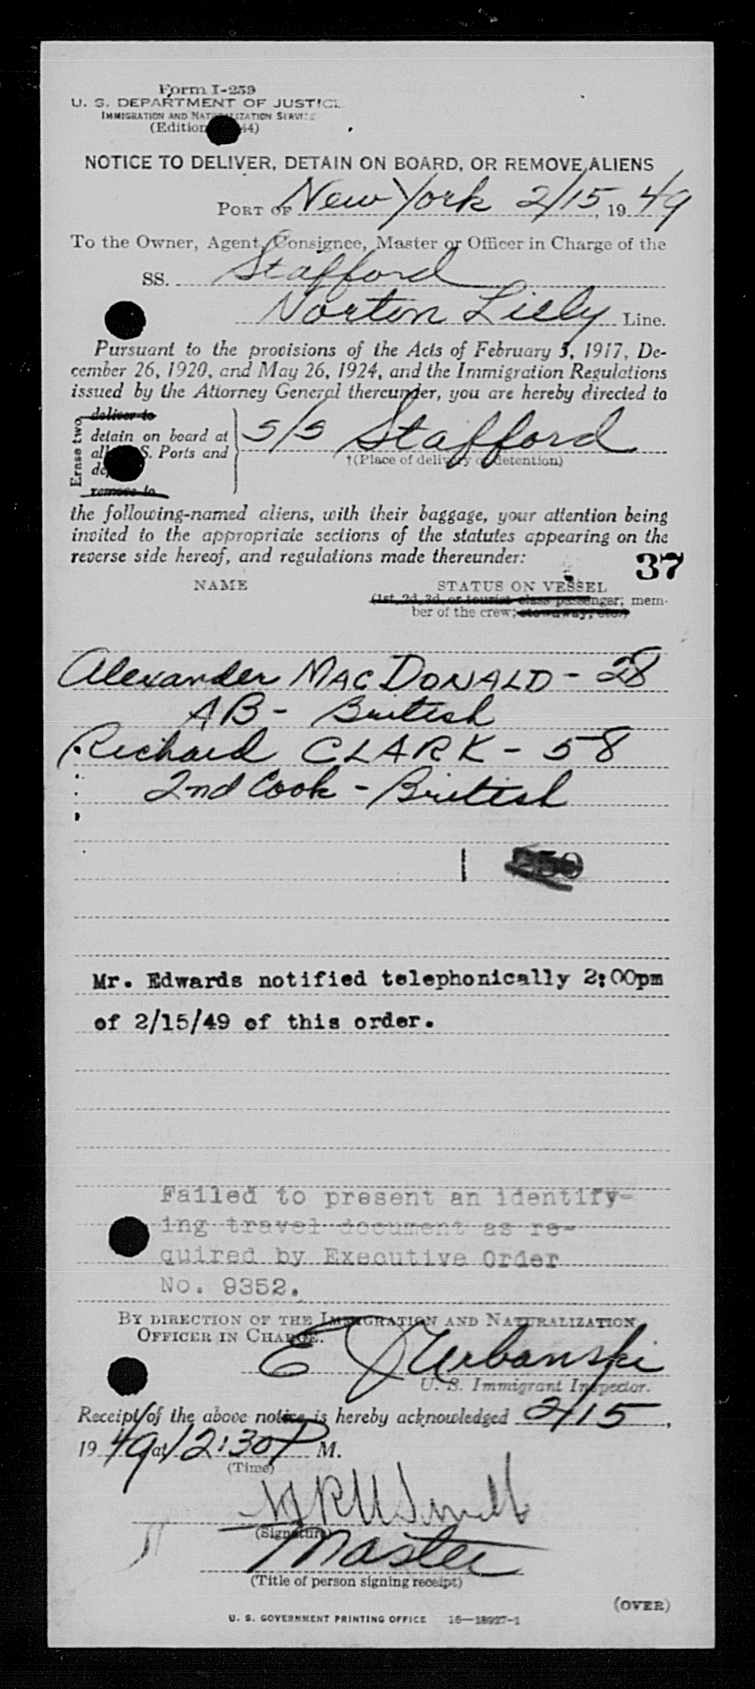 Form I-259
U. S. DEPARTMENT OF JUSTICE
IMMIGRATION AND NATURALIZATION SERVICE
(Edition 44)
NOTICE TO DELIVER, DETAIN ON BOARD, OR REMOVE ALIENS
PORT OF New York 2/15, 1949
To the Owner, Agent, Consignee, Master or Officer in Charge of the
SS. Stafford
Norton Lilly Line.
Pursuant to the provisions of the Acts of February 5, 1917, De-
cember 26, 1920, and May 26, 1924, and the Immigration Regulations
issued by the Attorney General thereunder, you are hereby directed to
Erase two
deliver to
detain on board at
all U.S. Ports and
remove to
S/S Stafford
†(Place of delivery or detention)
the following-named aliens, with their baggage, your attention being
invited to the appropriate sections of the statutes appearing on the
reverse side hereof, and regulations made thereunder:
37
NAME STATUS ON VESSEL
(1st, 2d, 3d, or tourist class passenger; mem-
ber of the crew; stowaway, etc.)
Alexander MACDONALD - 28
AB - British
Richard CLARK - 58
2nd Cook - British
Mr. Edwards notified telephonically 2:00pm
of 2/15/49 of this order.
Failed to present an identify-
ing travel document as re-
quired by Executive Order
No. 9352.
BY DIRECTION OF THE IMMIGRATION AND NATURALIZATION
OFFICER IN CHARGE.
E J Urbanski
U. S. Immigrant Inspector.
Receipt of the above notice is hereby acknowledged 2/15,
1949 at 12:30 P M.
(Time)
(Signature)
Master
(Title of person signing receipt)
(OVER)
U. S. GOVERNMENT PRINTING OFFICE 16—18927-1